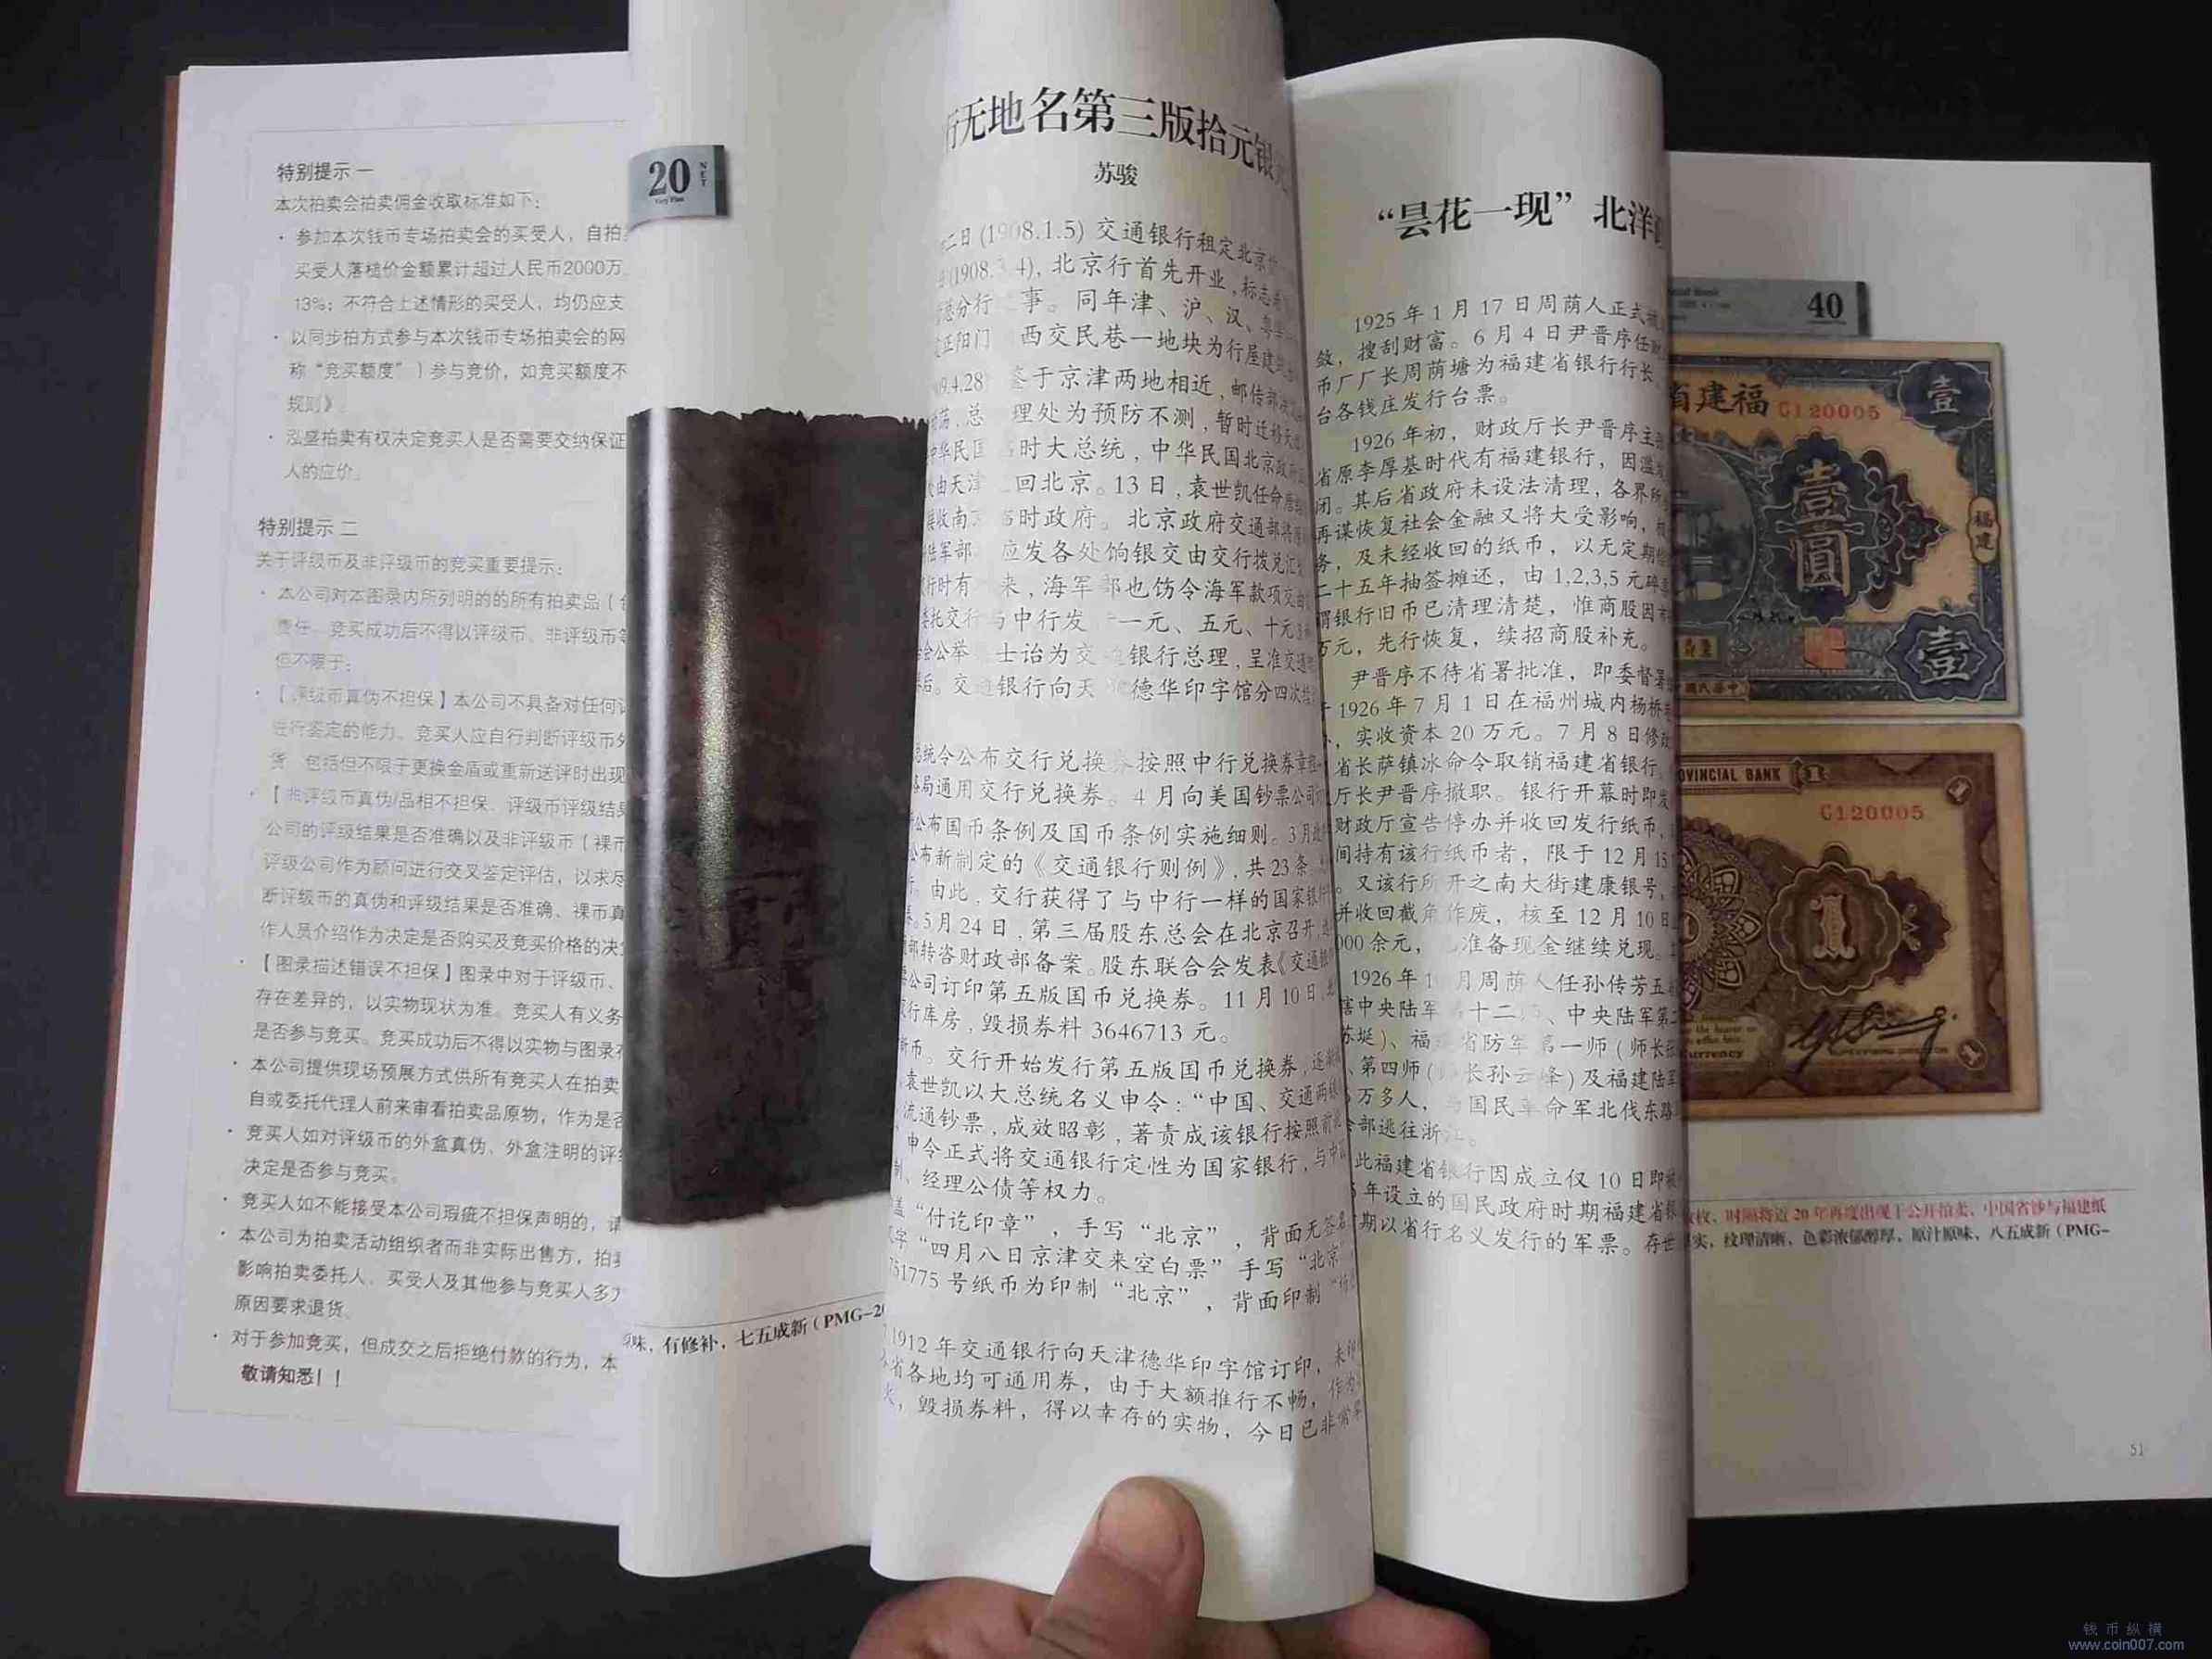 特别提示 一
本次拍卖会拍卖佣金收取标准如下：
· 参加本次钱币专场拍卖会的买受人，自拍
买受人落槌价金额累计超过人民币2000万
13%；不符合上述情形的买受人，均仍应支
· 以同步拍方式参与本次钱币专场拍卖会的网
称“竞买额度”）参与竞价，如竞买额度不
规则》。
· 泓盛拍卖有权决定竞买人是否需要交纳保证
人的应价。
特别提示 二
关于评级币及非评级币的竞买重要提示：
· 本公司对本图录内所列明的的所有拍卖品（
责任。竞买成功后不得以评级币、非评级币等
但不限于：
· 【评级币真伪不担保】本公司不具备对任何
进行鉴定的能力。竞买人应自行判断评级币
货 包括但不限于更换金盾或重新送评时出现
· 【非评级币真伪/品相不担保、评级币评级结果
公司的评级结果是否准确以及非评级币（裸币
评级公司作为顾问进行交叉鉴定评估，以求尽
断评级币的真伪和评级结果是否准确、裸币真
作人员介绍作为决定是否购买及竞买价格的决
· 【图录描述错误不担保】图录中对于评级币、
存在差异的，以实物现状为准。竞买人有义务
是否参与竞买。竞买成功后不得以实物与图录
· 本公司提供现场预展方式供所有竞买人在拍卖
自或委托代理人前来审看拍卖品原物，作为是否
· 竞买人如对评级币的外盒真伪、外盒注明的评级
决定是否参与竞买。
· 竞买人如不能接受本公司瑕疵不担保声明的，请
· 本公司为拍卖活动组织者而非实际出售方，拍卖
影响拍卖委托人、买受人及其他参与竞买人多方
原因要求退货。
· 对于参加竞买，但成交之后拒绝付款的行为，本
敬请知悉！！
20 NET
Very Fine
味，有修补，七五成新（PMG-20
行无地名第三版拾元银元
苏骏
二日 (1908.1.5) 交通银行租定北京
(1908.3.4)，北京行首先开业，标志
总分行 事。同年津、沪、汉、粤
正阳门 西交民巷一地块为行屋建筑
9.4.28) 鉴于京津两地相近，邮传部
荡，总 理处为预防不测，暂时迁移天
中华民国 临时大总统，中华民国北京政府
由天津 回北京。13 日，袁世凯任命
接收南京 临时政府。北京政府交通部将
陆军部 应发各处饷银交由交行拨兑汇
行时有 来，海军部也饬令海军款项交由
委托交行与中行发 一元、五元、十元
会公举 士诒为交通银行总理，呈准交通
后。交通银行向天 德华印字馆分四次
总统令公布交行兑换券按照中行兑换券章程
各局通用交行兑换券。4 月向美国钞票公司
公布国币条例及国币条例实施细则。3月
公布新制定的《交通银行则例》，共23条
。由此，交行获得了与中行一样的国家银行
。5 月 24 日，第三届股东总会在北京召开，
部转咨财政部备案。股东联合会发表《交通银
公司订印第五版国币兑换券。11 月 10 日，
行库房，毁损券料 3646713 元。
新币。交行开始发行第五版国币兑换券，逐渐
袁世凯以大总统名义申令：“中国、交通两银
流通钞票，成效昭彰，著责成该银行按照前
申令正式将交通银行定性为国家银行，与中
制、经理公债等权力。
盖“付讫印章”，手写“北京”，背面无签名
字“四月八日京津交来空白票”手写“北京
751775 号纸币为印制“北京”，背面印制
1912 年交通银行向天津德华印字馆订印，未
省各地均可通用券，由于大额推行不畅，作为
火，毁损券料，得以幸存的实物，今日已非常
“昙花一现”北洋
1925 年 1 月 17 日周荫人正式
敛，搜刮财富。6 月 4 日尹晋序任
币厂厂长周荫塘为福建省银行行长
台各钱庄发行台票。
1926 年初，财政厅长尹晋序主
省原李厚基时代有福建银行，因滥
闭。其后省政府未设法清理，各界所
再谋恢复社会金融又将大受影响，
务，及未经收回的纸币，以无定期
二十五年抽签摊还，由 1,2,3,5 元
谓银行旧币已清理清楚，惟商股因
万元，先行恢复，续招商股补充。
尹晋序不待省署批准，即委督署
1926 年 7 月 1 日在福州城内杨桥
，实收资本 20 万元。7 月 8 日
省长萨镇冰命令取销福建省银行
厅长尹晋序撤职。银行开幕时即发
财政厅宣告停办并收回发行纸币，
间持有该行纸币者，限于 12 月 15
。又该行所开之南大街建康银号，
并收回截角作废，核至 12 月 10 日
000 余元， 准备现金继续兑现。
1926 年 1 月周荫人任孙传芳五
辖中央陆军第十二师、中央陆军第
苏埏）、福建省防军第一师（师长张
、第四师（师长孙云峰）及福建陆军
万多人，与国民革命军北伐东路
部逃往浙江。
此福建省银行因成立仅 10 日即被
年设立的国民政府时期福建省银
期以省行名义发行的军票。存世
40
福建省
C120005
壹
壹圓
福建
壹
中華民國
PROVINCIAL BANK
1
C120005
1
枚，时隔将近 20 年再度出现于公开拍卖，中国省钞与福建纸
实，纹理清晰，色彩浓郁醇厚，原汁原味，八五成新（PMG-
51
钱币纵横
www.coin007.com